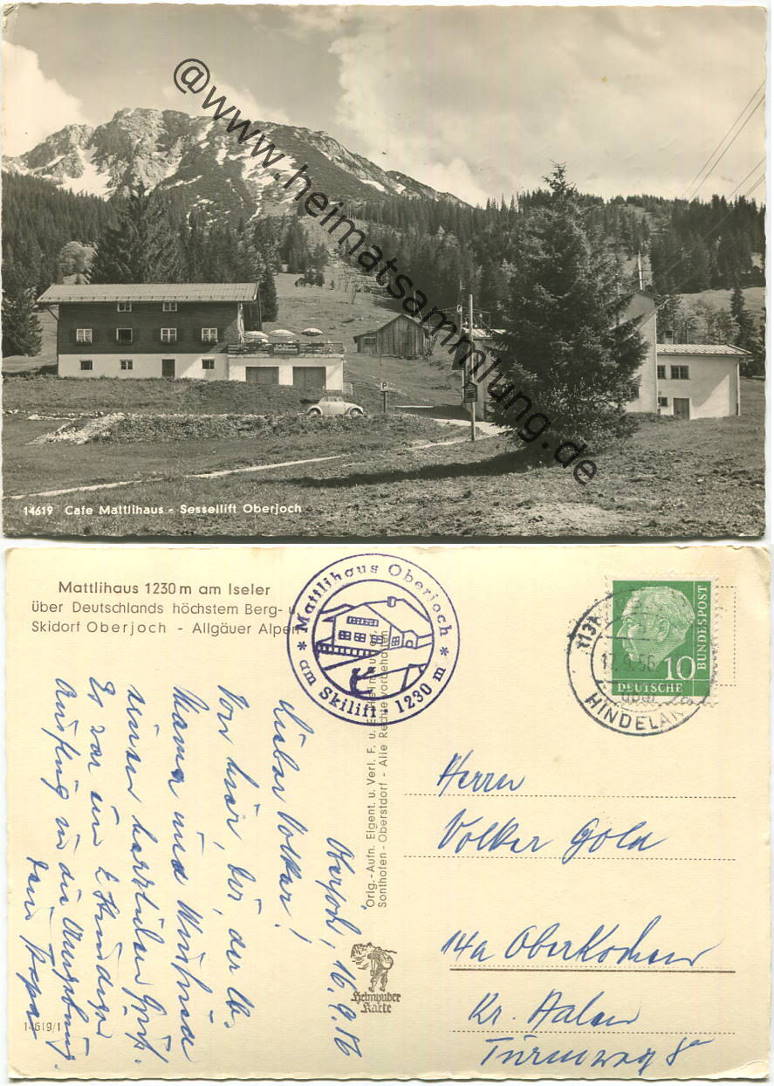 @www.heimatsammlung.de
P
14619 Cafe Mattlihaus - Sessellift Oberjoch
Mattlihaus 1230 m am Iseler
über Deutschlands höchstem Berg- u.
Skidorf Oberjoch - Allgäuer Alpen
* Mattlihaus Oberjoch *
am Skilift · 1230 m
(13b)
56
HINDELANG
DEUTSCHE
BUNDESPOST
10
Oberjoch, 16.9.56
Lieber Volker!
Von hier, bei, der lb.
Mama und
einen herzlichen Gruß.
Es war ein 2 stündiger
Ausflug in die Umgebung.
Dein Papa
Orig.-Aufn. Eigent. u. Verl. F. u.
Sonthofen - Oberstdorf - Alle Rechte vorbehalten
Heimhuber
Karte
14619/1
Herrn
Volker Gold
14a Oberkochen
Kr. Aalen
Turmweg 8